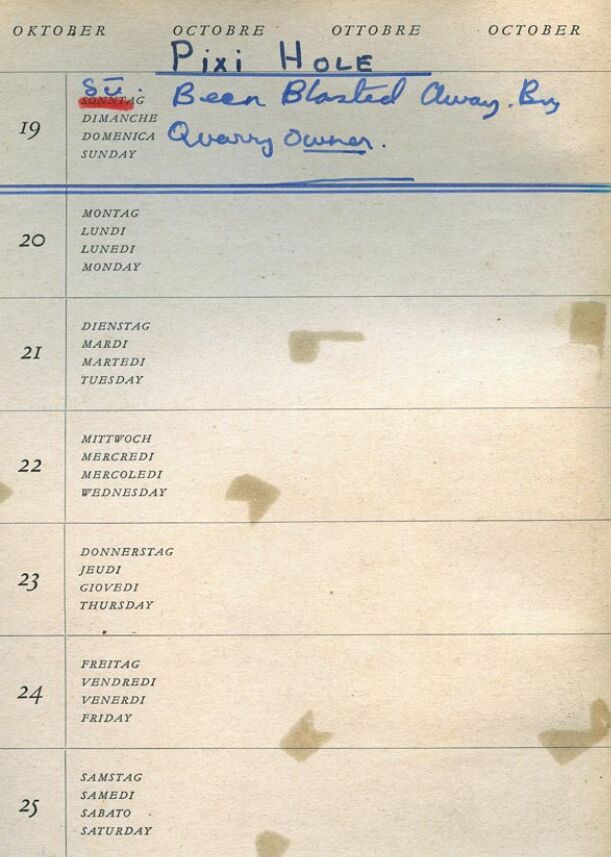 OKTOBER OCTOBRE OTTOBRE OCTOBER
Pixi HOLE
Sū.
19 SONNTAG Been Blasted Away. By
DIMANCHE
DOMENICA Quarry owner.
SUNDAY
MONTAG
LUNDI
20 LUNEDI
MONDAY
DIENSTAG
21 MARDI
MARTEDI
TUESDAY
MITTWOCH
MERCREDI
22 MERCOLEDI
WEDNESDAY
DONNERSTAG
JEUDI
23 GIOVEDI
THURSDAY
FREITAG
VENDREDI
24 VENERDI
FRIDAY
SAMSTAG
SAMEDI
25 SABATO
SATURDAY